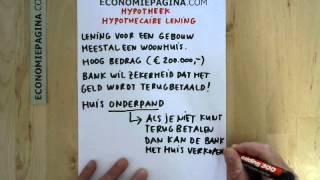 ECONOMIEPAGINA.COM
HYPOTHEEK
HYPOTHECAIRE LENING
LENING VOOR EEN GEBOUW
MEESTAL EEN WOONHUIS.
HOOG BEDRAG (€ 200.000,-)
BANK WIL ZEKERHEID DAT HET
GELD WORDT TERUGBETAALD!
HUIS ONDERPAND
ALS JE NIET KUNT
TERUG BETALEN
DAN KAN DE BANK
HET HUIS VERKOPEN
edding 300